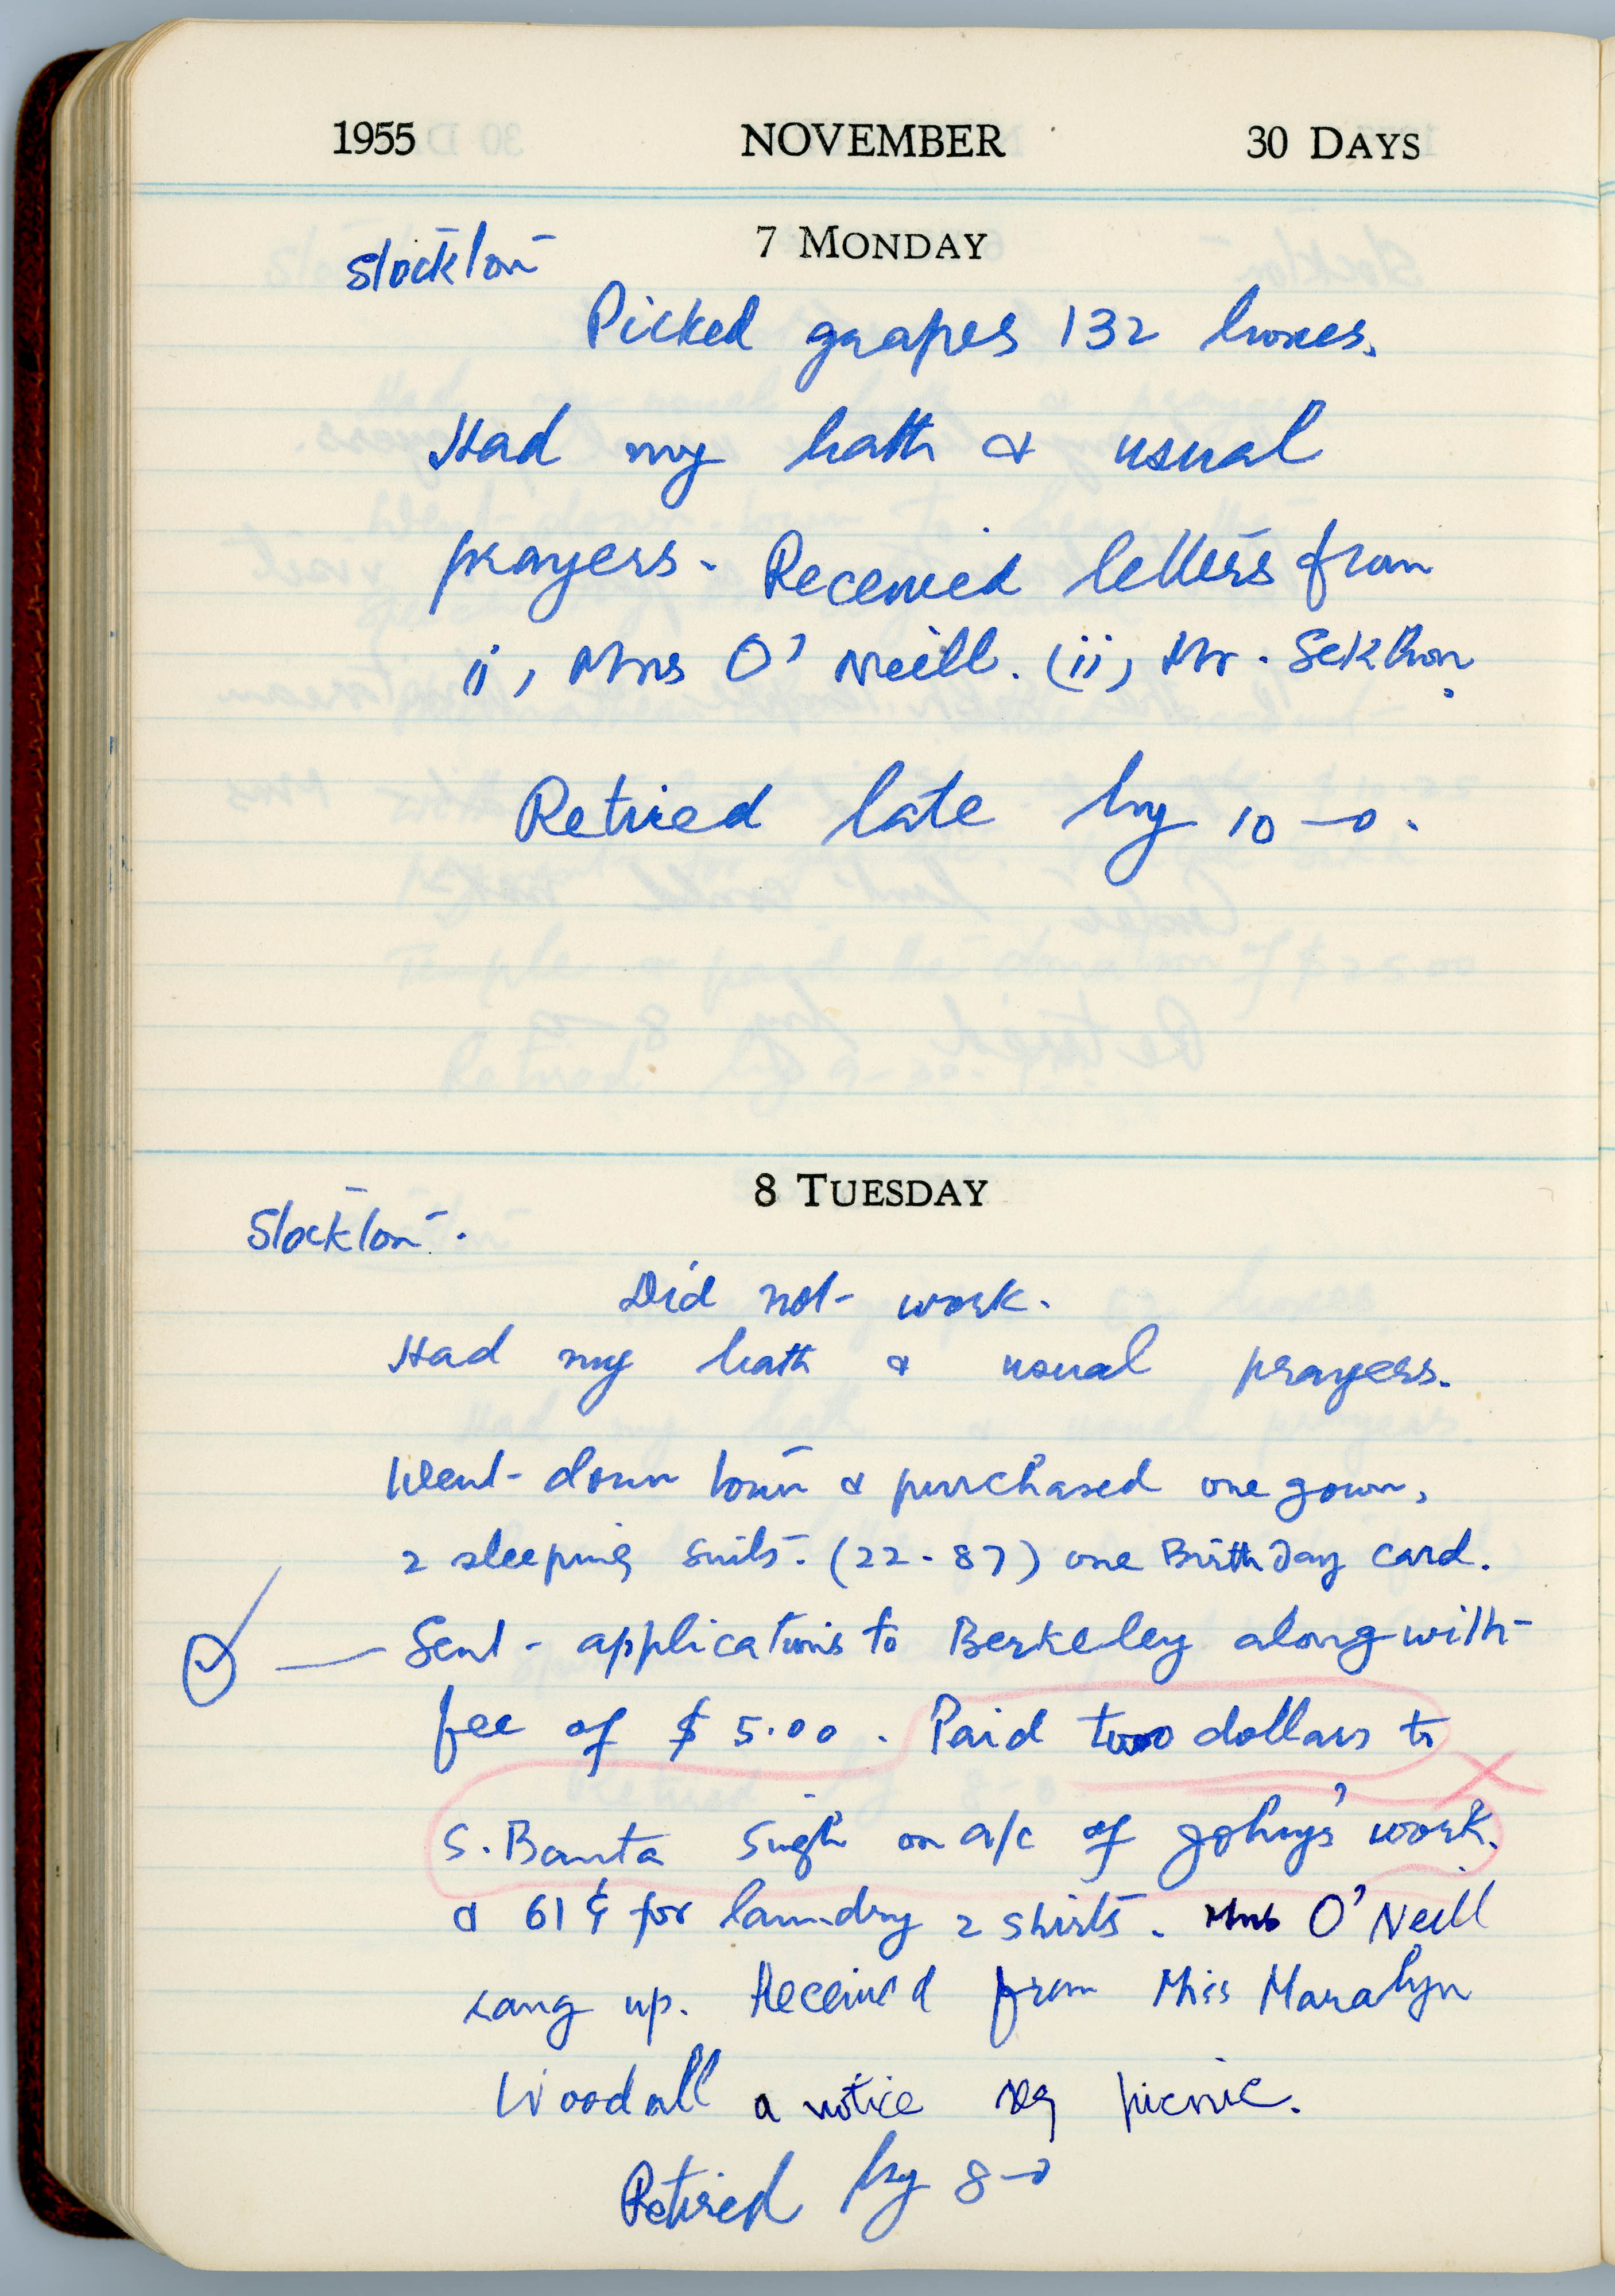 1955 NOVEMBER 30 DAYS
7 MONDAY
Stockton
Picked grapes 132 boxes.
Had my bath & usual
prayers. Received letters from
(i), Mrs O'Neill. (ii) Mr. Sekhon.
Retired late by 10-0.
8 TUESDAY
Stockton.
Did not work.
Had my bath & usual prayers.
Went down town & purchased one gown,
2 sleeping suits. (22.87) one Birth Day card.
Sent applications to Berkeley along with
fee of $ 5.00. Paid two dollars to
S. Banta Singh on a/c of Johny's work.
& 61¢ for laundry 2 shirts. Mrs O'Neill
rang up. Received from Miss Maralyn
Woodall a notice reg picnic.
Retired by 8-0